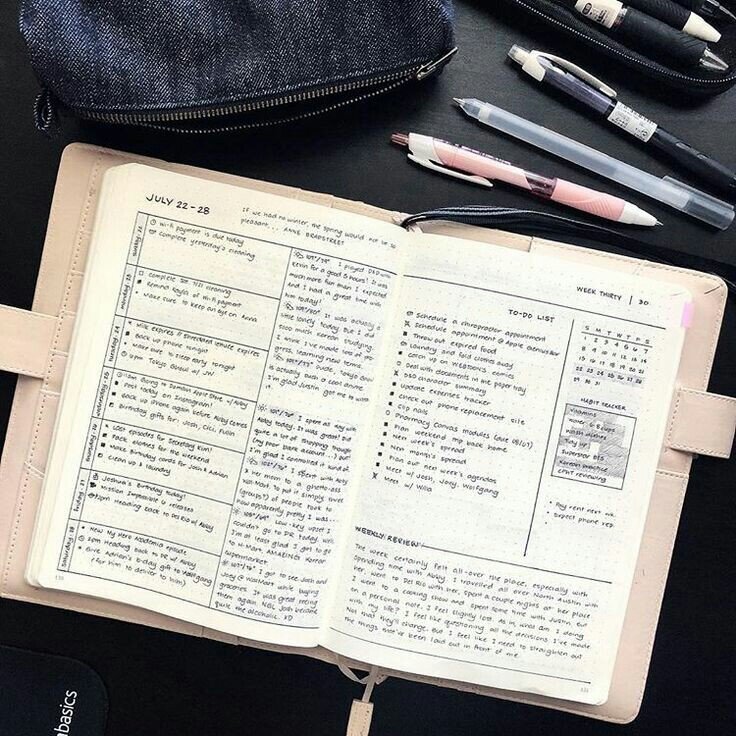 JULY 22 - 28
If we had no winter, the spring would not be so
pleasant... ANNE BRADSTREET
Sunday 22
Wi-fi payment is due today
Complete yesterday's cleaning
Monday 23
Complete 7/21 cleaning
Remind Kayla of Wi-fi payment
Make sure to keep an eye on Anna
Tuesday 24
Milk expires // Shredded lettuce expires
Back up phone tonight
Make sure to sleep early tonight
9pm Tokyo Ghoul w/ JW
Wednesday 25
11am Going to Domain Apple Store w/ Abby
Post today on Instagram!
Back up iPhone again before Abby comes
Birthday gifts for: Josh, Cici, Fulin
Last episodes for Secretary Kim!
Pack clothes for the weekend
Make Birthday cards for Josh & Adrian
Clean up & laundry
Friday 27
Joshua's Birthday today!
Mission Impossible 6 releases
Heading back to Del Rio w/ Abby
Saturday 28
New My Hero Academia episode
2pm Heading back to DR w/ Abby
Give Adrian's birthday gift to
(for him to deliver to him)
I played D&D with
Kevin for a good 5 hours! It was
much more fun than I expected
and I had a great time with
him today!
It was actually a
little lonely today. But I did
sooo much Korean studying.
I think I've made lots of
gress, learning new terms.
Dude, Tokyo Ghoul
is actually such a cool anime.
I'm glad Justin got me to watch
I spent all day with
Abby today. It was great! Did
quite a lot of shopping though
(my poor bank account...) but
I'm glad I commissioned it kind of.
I spent with Abby
to a ghetto-ass
Wal-Mart. To put it simply, three
(groups?) of people took
how apparently pretty I was...
Low-key upset I
couldn't go to DR today. Well,
I'm at least glad I got to go
to H-Mart. AMAZING Korean
supermarket.
I got to see Josh and
Joey @ WalMart while buying
groceries. It was great seeing
them again. NGL Josh became
quite the alcoholic. XD
WEEK THIRTY | 30
TO-DO LIST
Schedule a chiropractor appointment
Schedule appointment @ Apple Genius Bar
Throw out expired food
Laundry and fold clothes away
Catch up on Webtoon's comics
Deal with documents in the paper tray
D&D character summary
Update expenses tracker
Check out phone replacement site
Clip nails
Pharmacy Canvas modules (due 08/07)
Plan weekend trip back home
New week's spread
New month's spread
Plan out next week's agendas
Meet w/ Josh, Joey, Wolfgang
Meet w/ Willa
S M T W T F S
1 2 3 4 5 6 7
8 9 10 11 12 13 14
15 16 17 18 19 20 21
22 23 24 25 26 27 28
29 30 31
HABIT TRACKER
Vitamins
Water 6-8 cups
Wash dishes
Tidy up
Superstar BTS
Korean practice
CPNT reviewing
* Pay rent next wk.
* Direct phone rep.
WEEKLY REVIEW
The week certainly felt all-over the place, especially with
spending time with Abby. I travelled all over North Austin with
her, went to Del Rio with her, spent a couple nights at her place.
I went to a cooking show and spent some time with Justin, but
on a personal note, I feel slightly lost. As in, what am I doing
with my life? I feel like questioning all the decisions I've made.
Not that they'll change. But I feel like I need to straighten out
the things that've been laid out in front of me.
basics